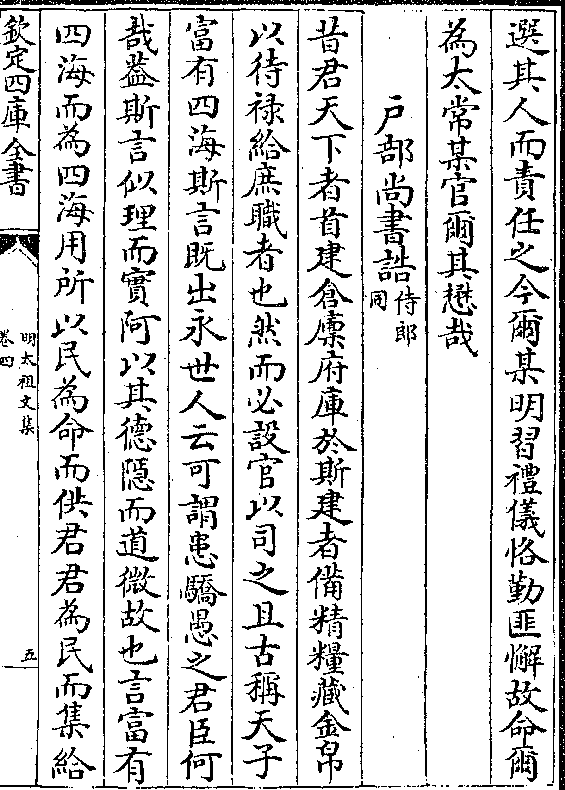 選其人而責任之今爾某明習禮儀恪勤匪懈故命爾
為太常某官爾其懋哉
戸部尚書誥侍郎同
昔君天下者首建倉廪府庫於斯建者備精糧藏金帛
以待禄給庶職者也然而必設官以司之且古稱天子
富有四海斯言既出永世人云可謂恚驕愚之君臣何
哉葢斯言似理而實阿以其德隱而道微故也言富有
四海而為四海用所以民為命而供君君為民而集給
欽定四庫全書
明太祖文集
卷四
五